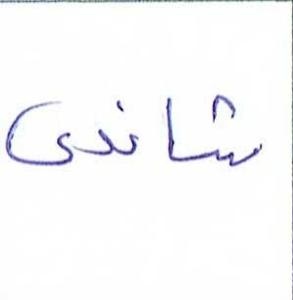 شاندى